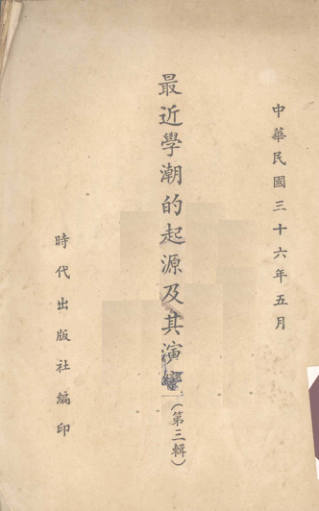 中華民國三十六年五月
最近學潮的起源及其演變(第三輯)
時代出版社編印